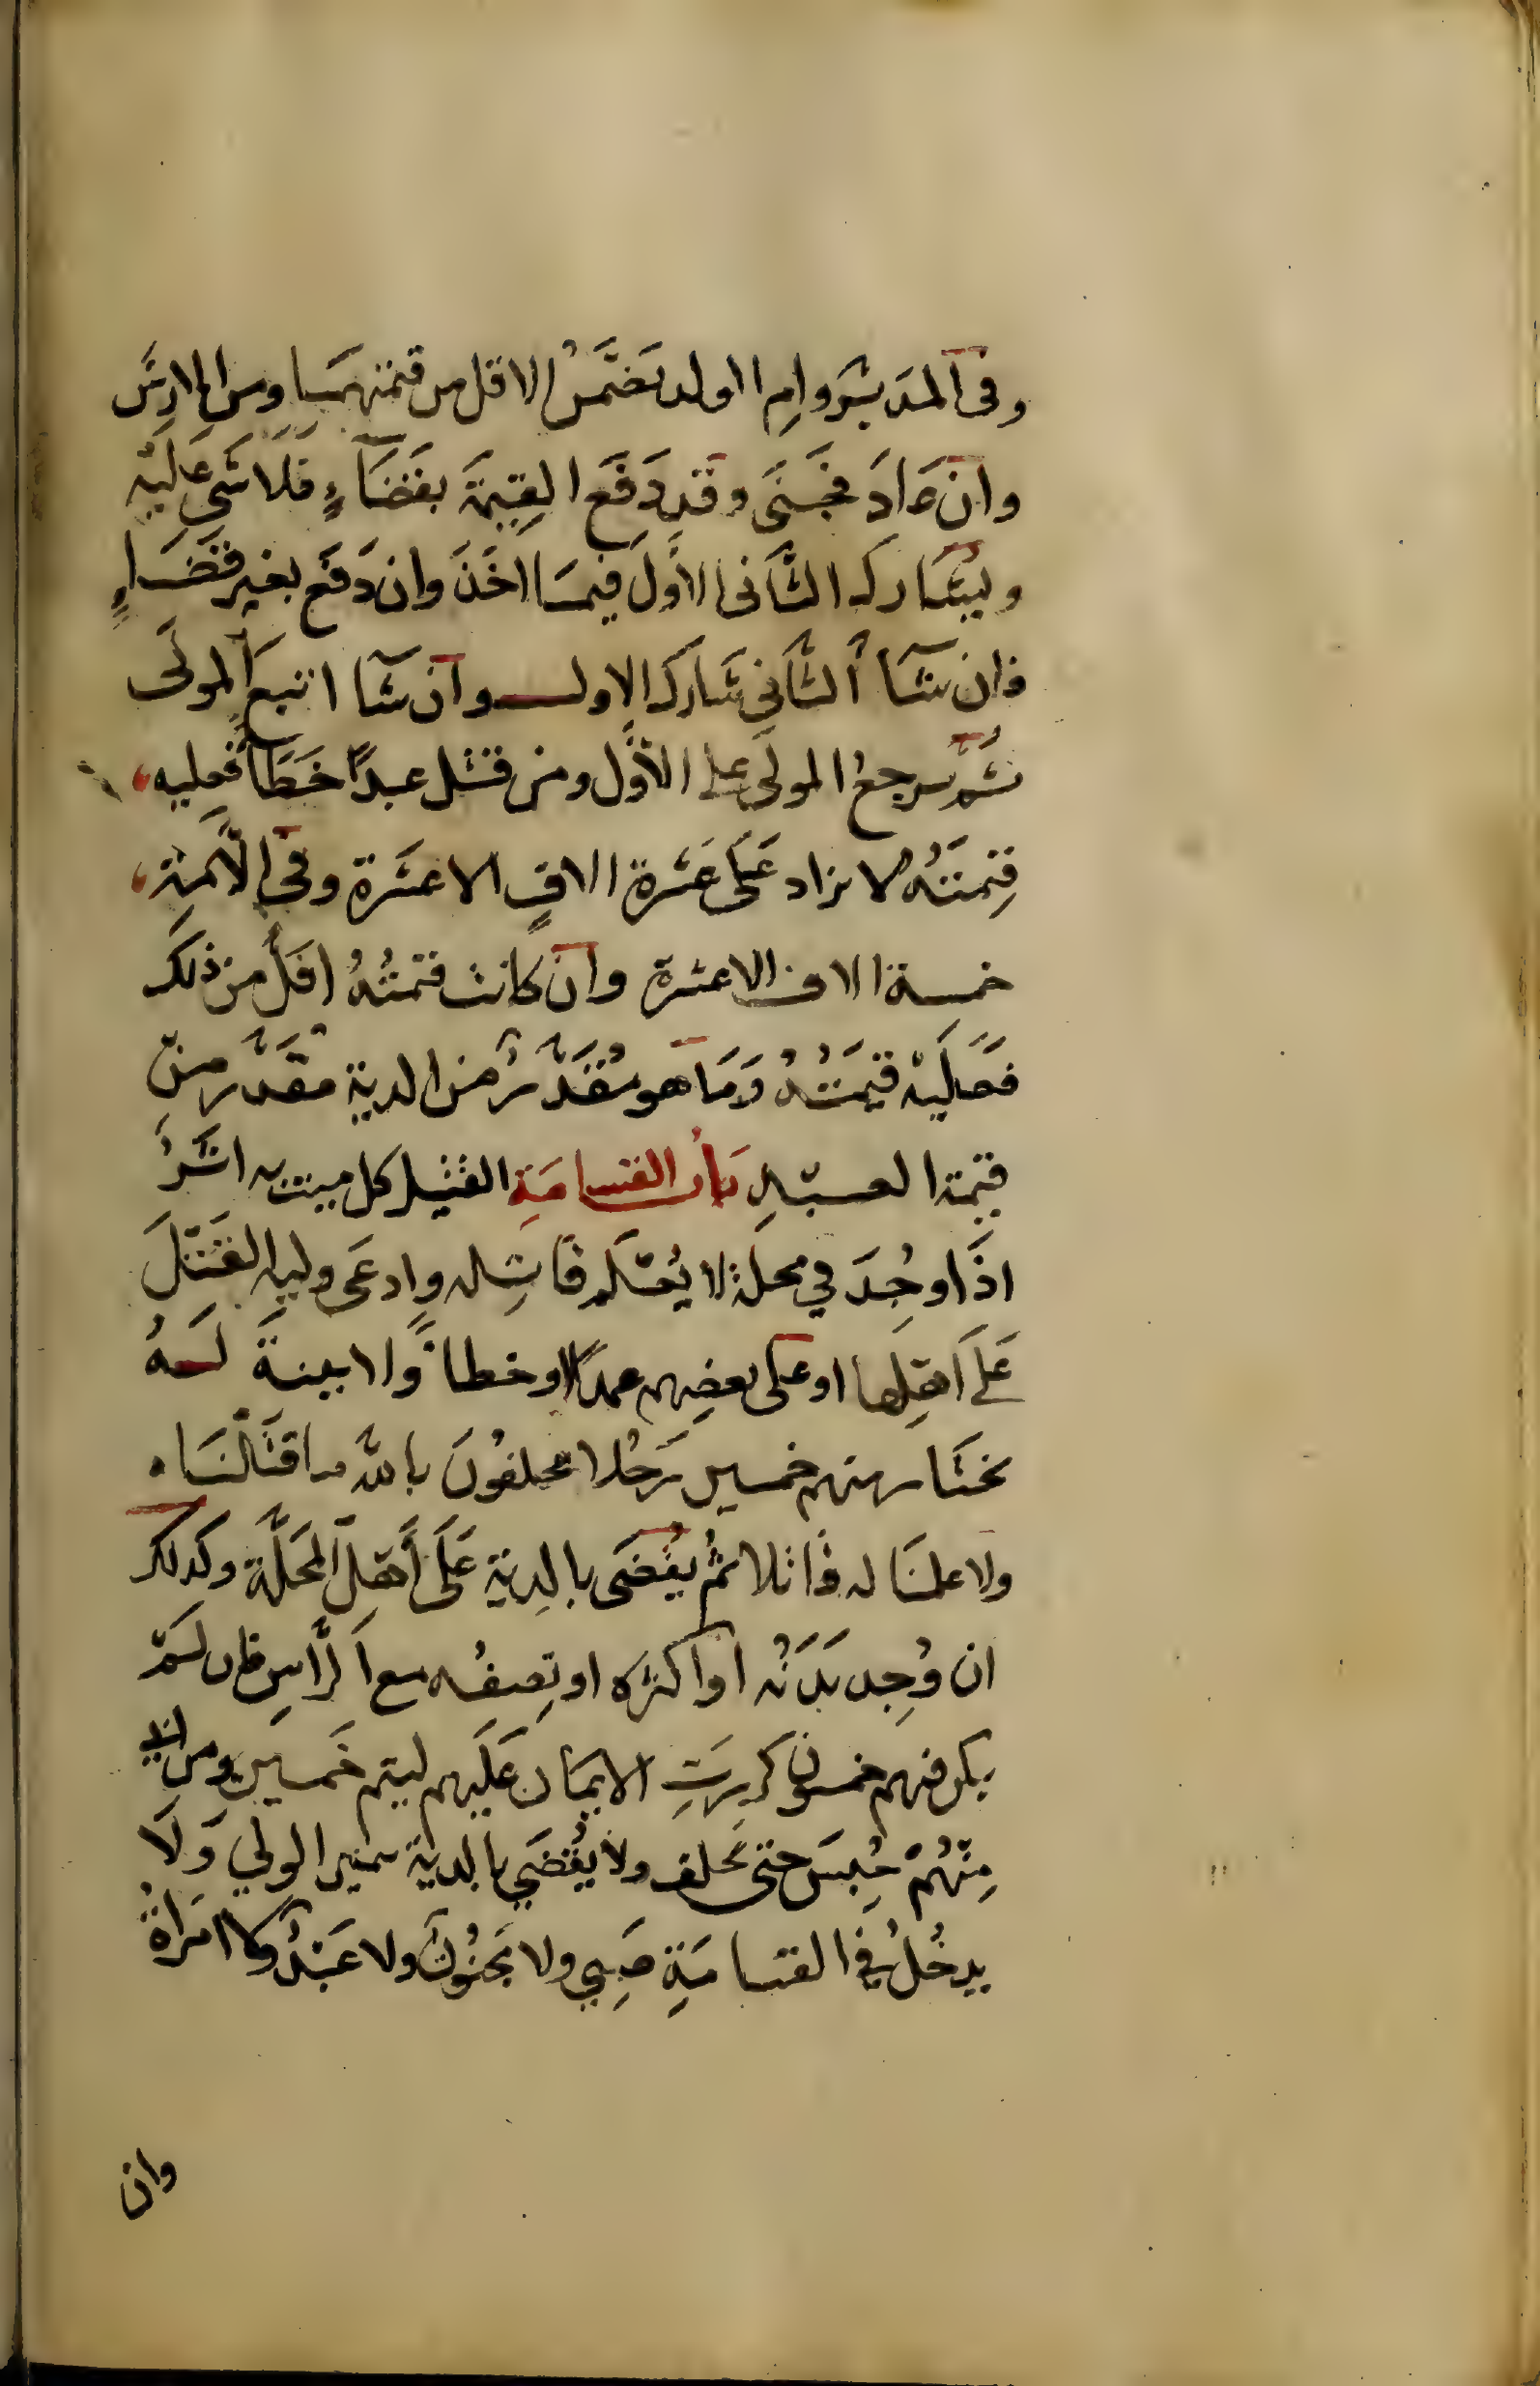 وفى المدبر وام الولد يضمن الاقل من قيمتهما ومن الارش
وان عَادَ فجَنَى وقد دَفَع القِيمَة بقَضَاءٍ فلا شَى عليْه
ويشارك الثانى الاول فيما اخَذَ وان دَفَع بغير قضاءٍ
فان شَا الثَّانِى شَارك الاول وان شَا اتبع المولَى
ثم يرجعُ المولى على الاوّل ومن قتل عبدًا خَطَأً فعليه
قِيمتُهُ لا يزاد عَلَى عَشرة الافٍ الا عشَرة وفى الاَمَةِ
خمسة الاف الا عشرة وان كانت قيمتُهُ اقَلُّ من ذلك
فعليْه قيمَتُهُ وَمَا هو مُقَدَّرٌ من الدية مقَدَّر مِن
قيمة العبْدِ بابُ القسامَةِ القتيل كل ميت به اثَرٌ
اذَا وجُدَ في محلة لا يُعْلم قاتِله وادعَى وليه القَتلَ
عَلَى اَهلِها او على بعضِهم عمدًا او خطأً ولا بينةَ لهُ
يختَار منهم خمسين رَجُلا يحلفُونَ بالله ما قتَلنَاه
ولا علمنَا له قاتلا ثُم يُقضَى بالدِية عَلَى أَهلِ المَحَلَّة وكذلك
ان وُجِد بَدَنُه او اكثره او نِصفُه مع الرَّاسِ فان لَم
يكن فيهم خمسون كررتِ الايمَان عَلَيهم ليتم خَمسِين ومن ابى
مِنْهُمْ حُبِسَ حتى يحلف ولا يُقْضَي بالدية بيمين الولي وَلَا
يدخُلُ في القسامَةِ صَبِي ولا مَجنُون ولا عَبْدٌ ولا امرَاةٌ
وان